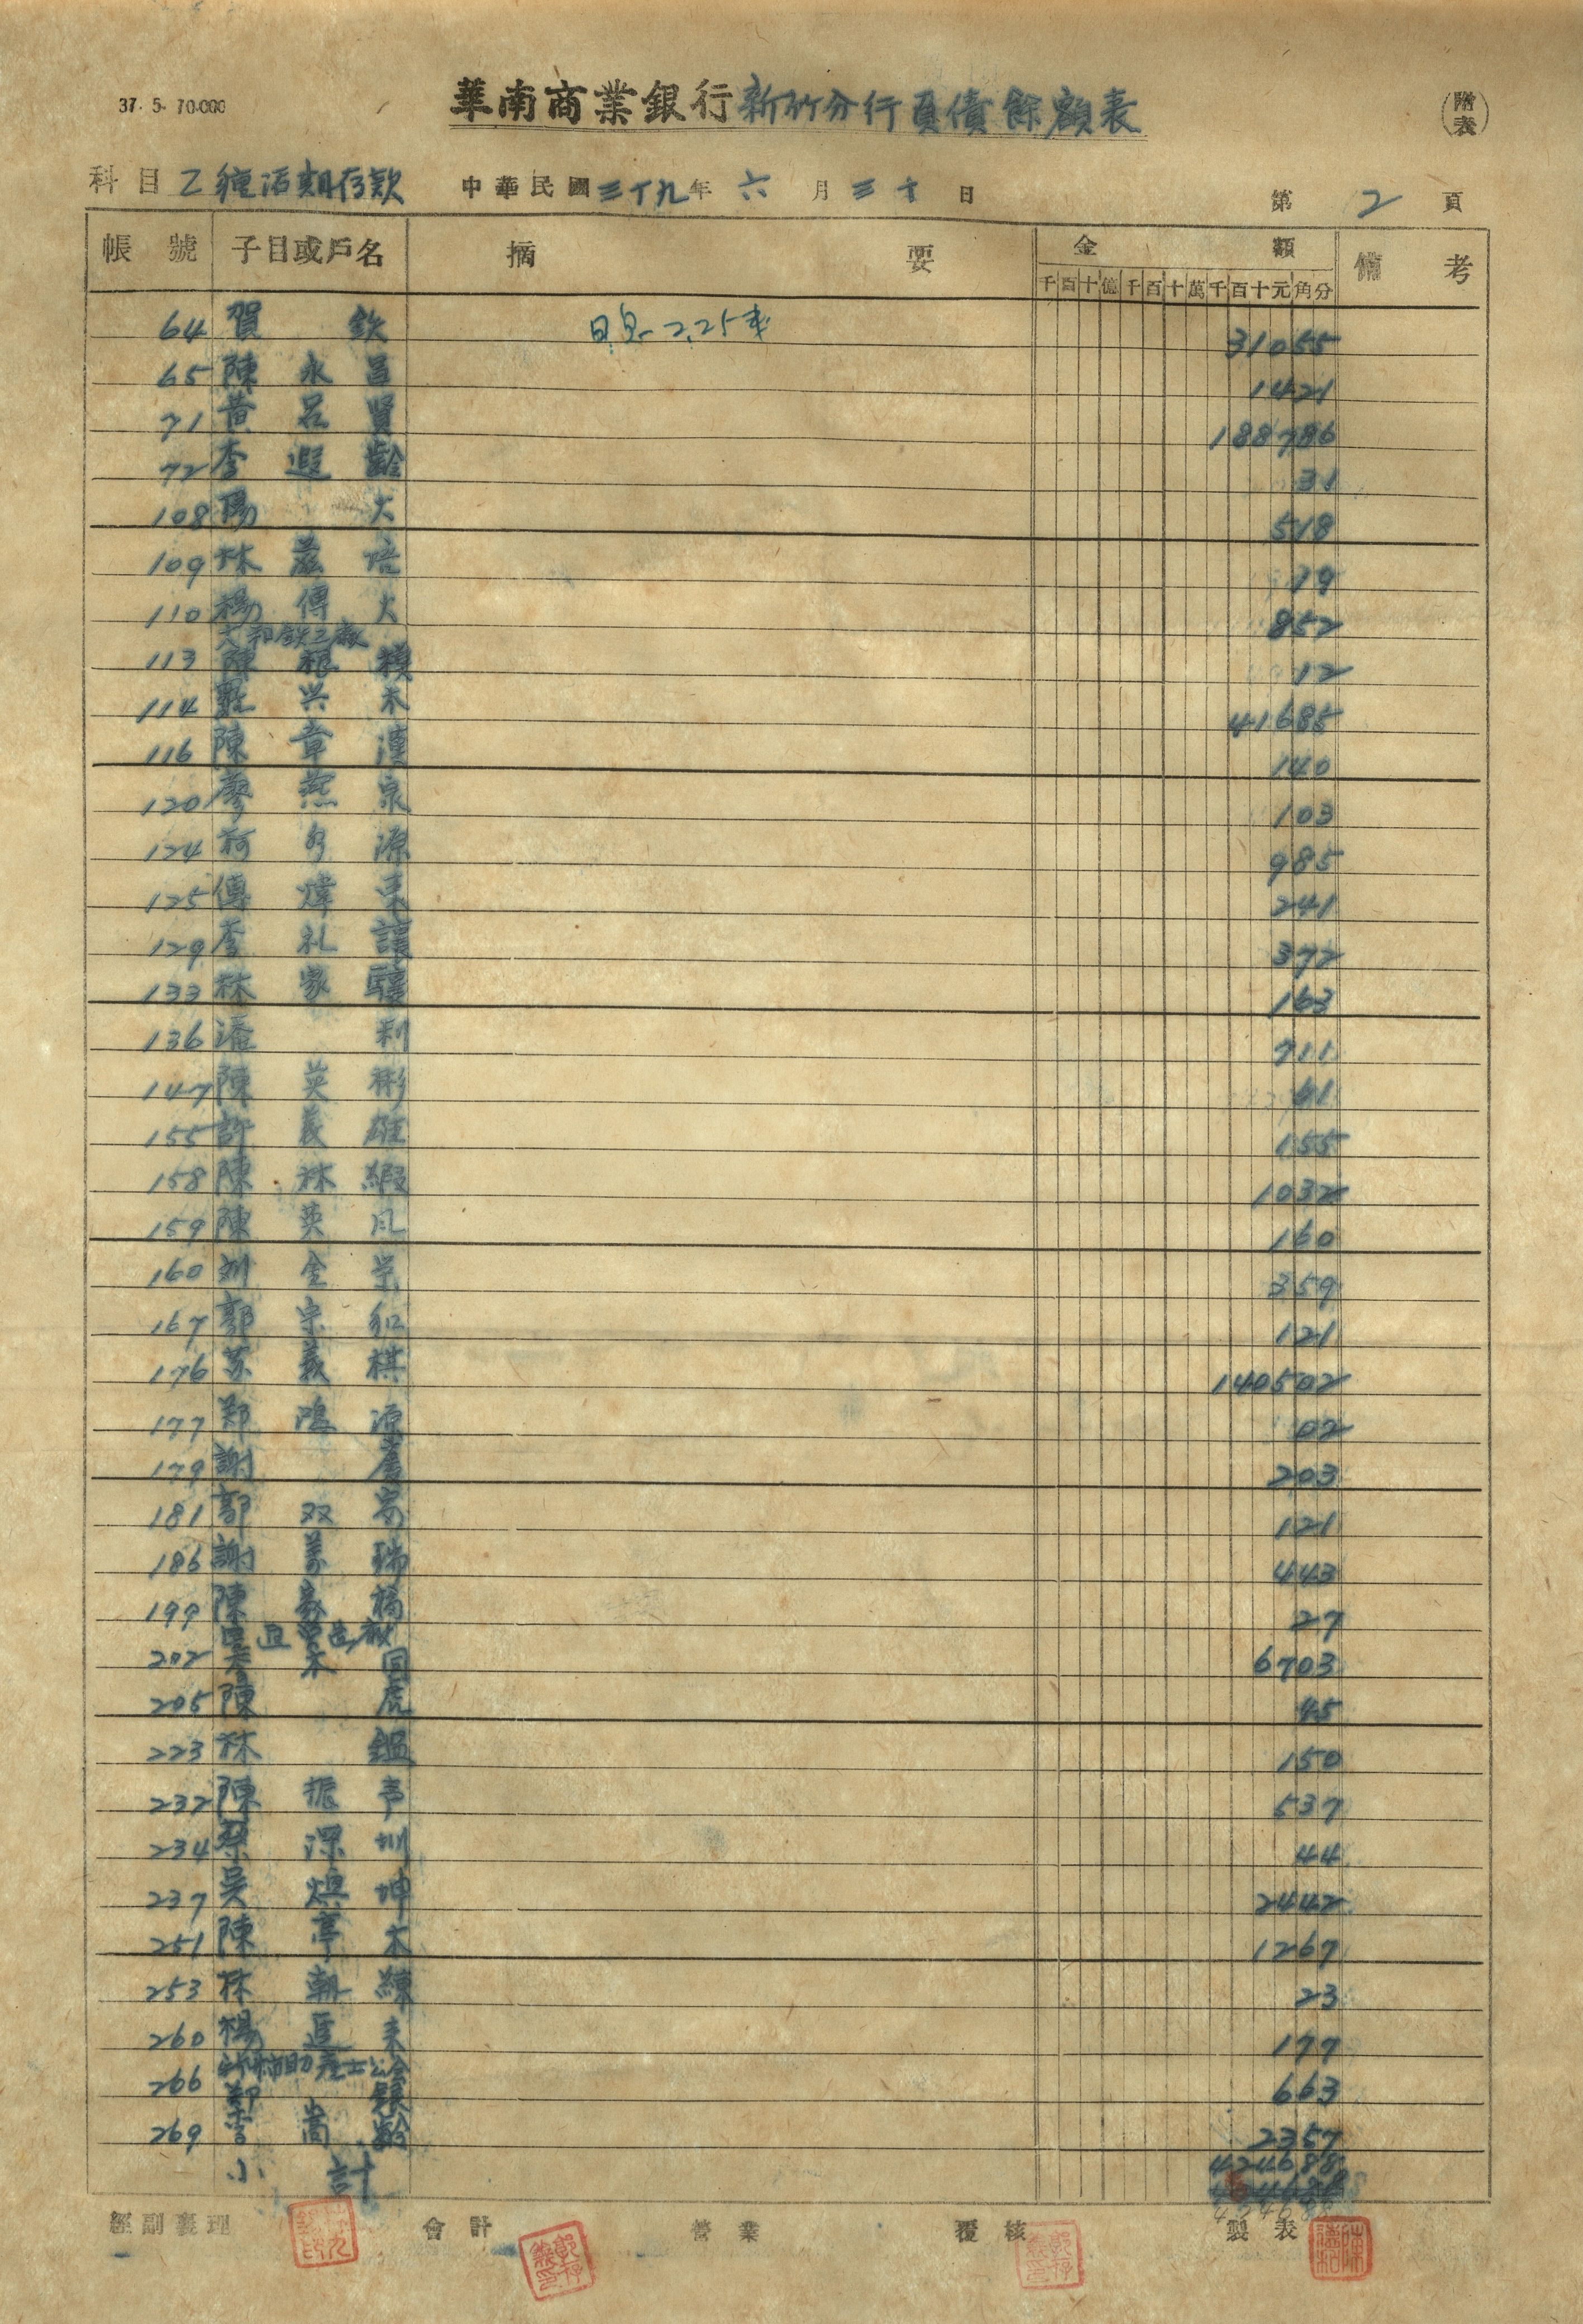 37. 5. 70.000
華南商業銀行新竹分行負債餘額表
(附表)
科目 乙種活期存款 中華民國三十九年六月三十日 第2頁
帳號 子目或戶名 摘要 金額 備考
千百十億千百十萬千百十元角分
64 賀 欽 日息 2.25 31055
65 陳永昌 1421
71 黃呂賢 188786
72 李遐齡 31
108 楊 大 518
109 林 培 19
110 楊傳火 852
大和鉄工廠
113 陳根 12
114 興木 41685
116 陳章漢 140
120 廖燕泉 103
124 柯 源 985
125 傅煒 241
129 李礼讓 372
133 林家驥 163
136 潘 利 711
147 陳英彬 61
155 許義雄 155
158 陳林緞 1032
159 陳英凤 160
160 刘金荣 359
167 郭宗和 121
176 苏義棋 140502
177 郑鴻源 02
179 謝 203
181 郭双 121
186 謝 瑞 443
199 陳 27
202 木同 6703
205 陳 虎 45
223 林 鎰 150
232 陳振声 537
234 蔡深圳 44
237 吳煥坤 2442
251 陳亭木 1267
253 林朝練 23
260 楊進来 177
助產士公会
266 鄭 663
269 李嵩齡 2357
小計 424688
經副襄理 會計 營業 覆核 製表